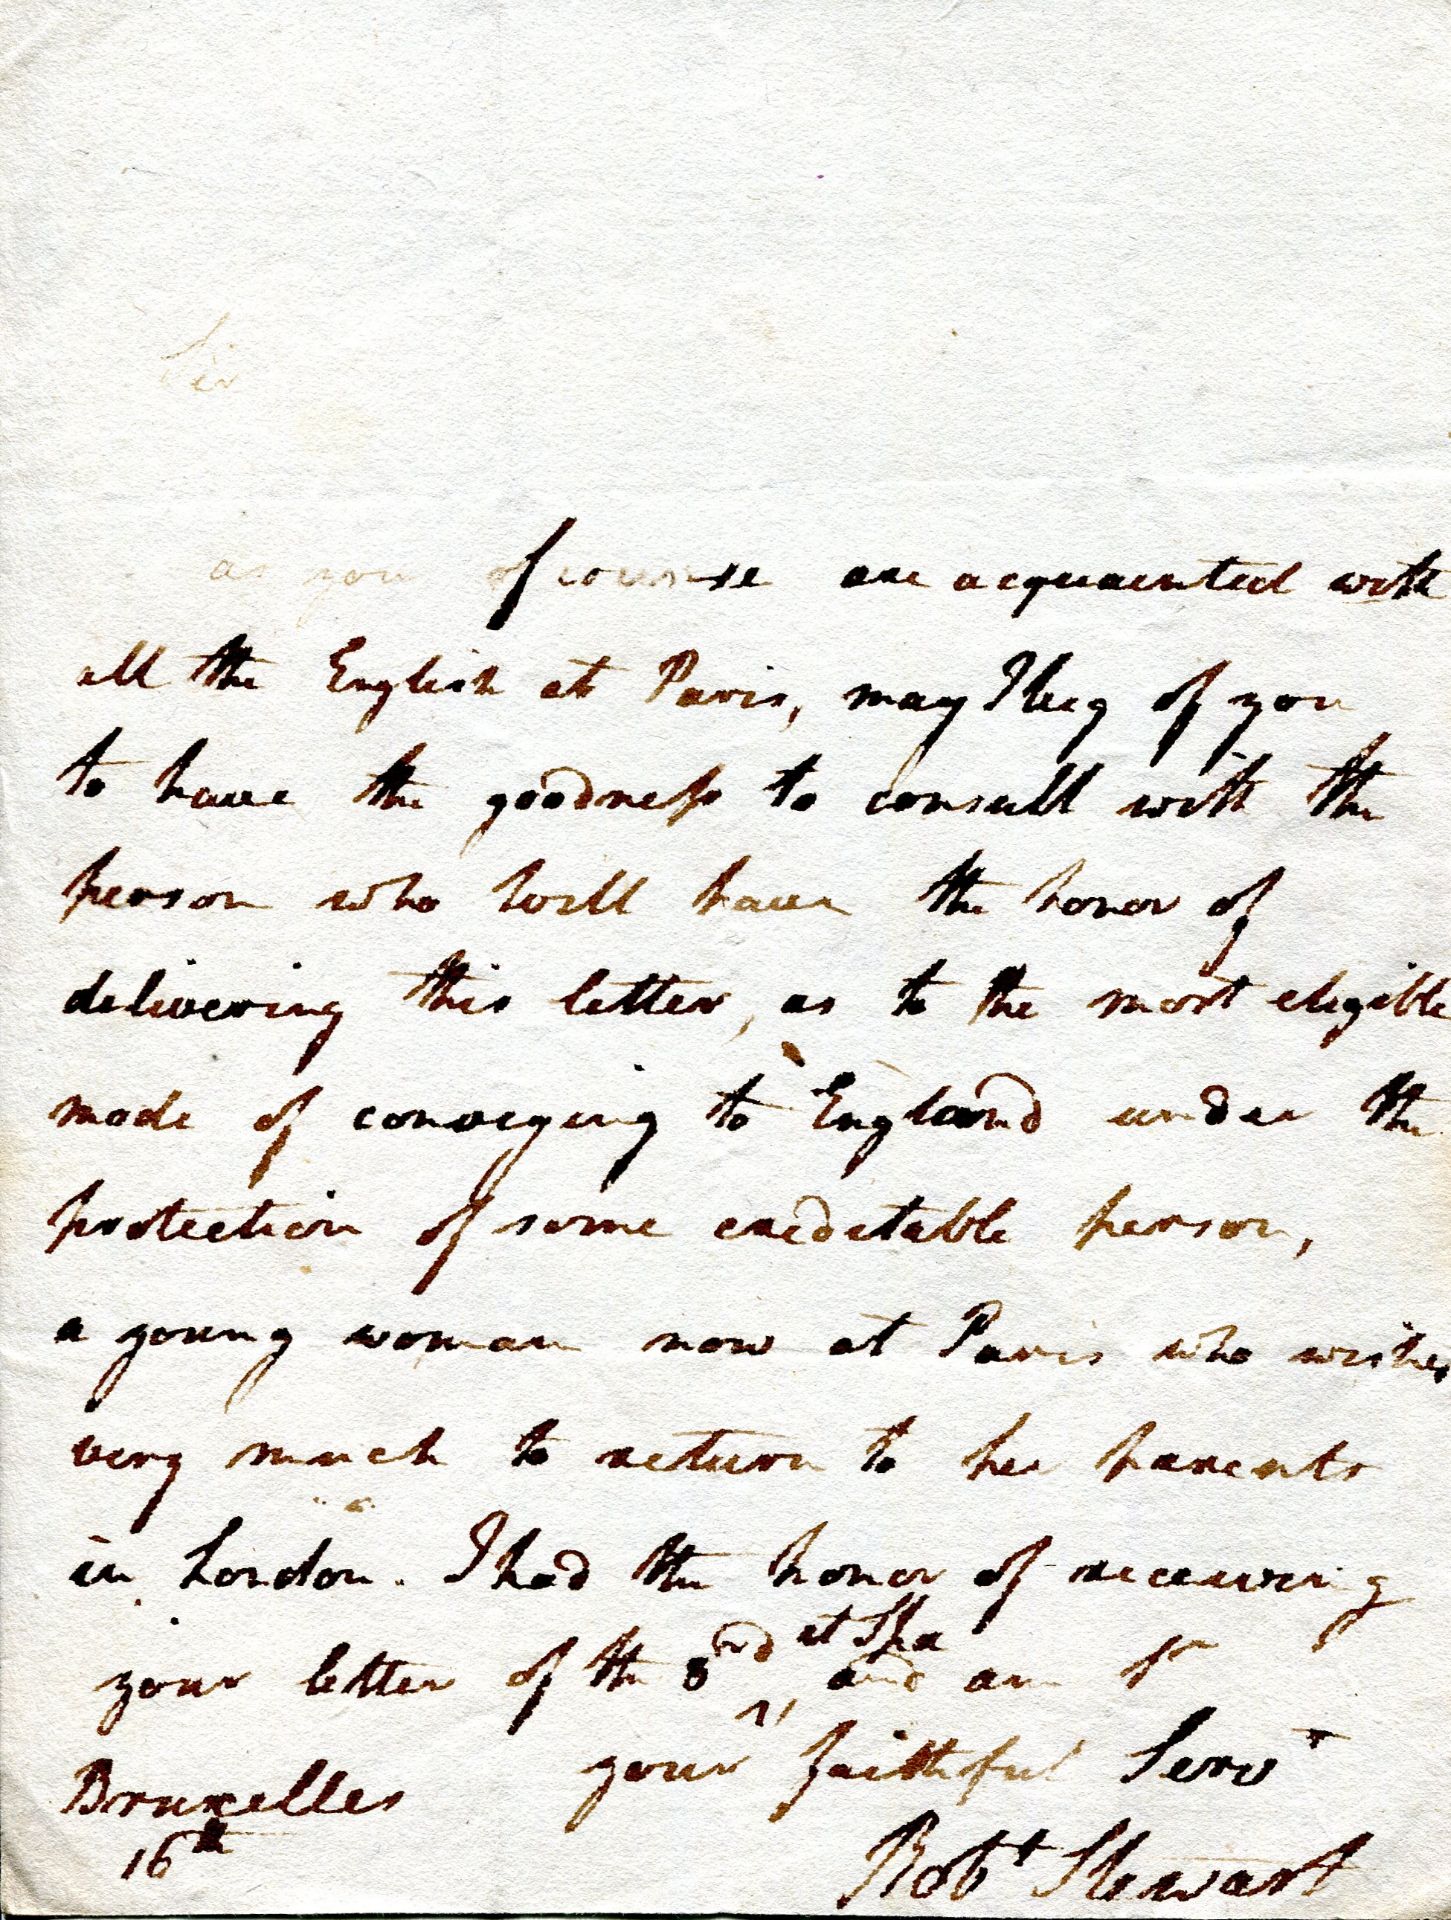 Sir
as you of course are acquainted with
all the English at Paris, may I beg of you
to have the goodness to consult with the
person who will have the honor of
delivering this letter, as to the most eligible
mode of conveying to England under the
protection of some creditable person,
a young woman now at Paris who wishes
very much to return to her parents
in London. I had the honor of receiving
your letter of the 3rd at Spa and am Sr
your faithful Servt
Bruxelles
16th
Robt Stewart